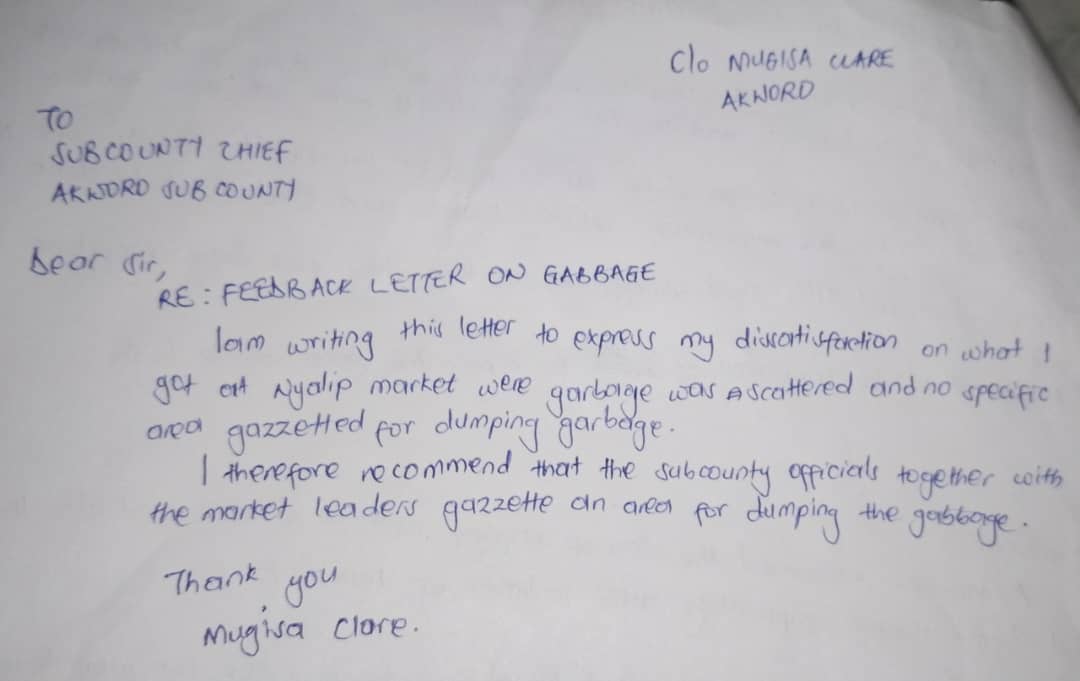 C/o MUGISA CLARE
AKWORO
TO
SUBCOUNTY CHIEF
AKWORO SUB COUNTY
Dear Sir,
RE: FEEDBACK LETTER ON GABBAGE
Iam writing this letter to express my dissatisfaction on what I
got at Nyalip market were garbage was scattered and no specific
area gazzetted for dumping garbage.
I therefore recommend that the subcounty officials together with
the market leaders gazzette an area for dumping the gabbage.
Thank you
Mugisa Clare.